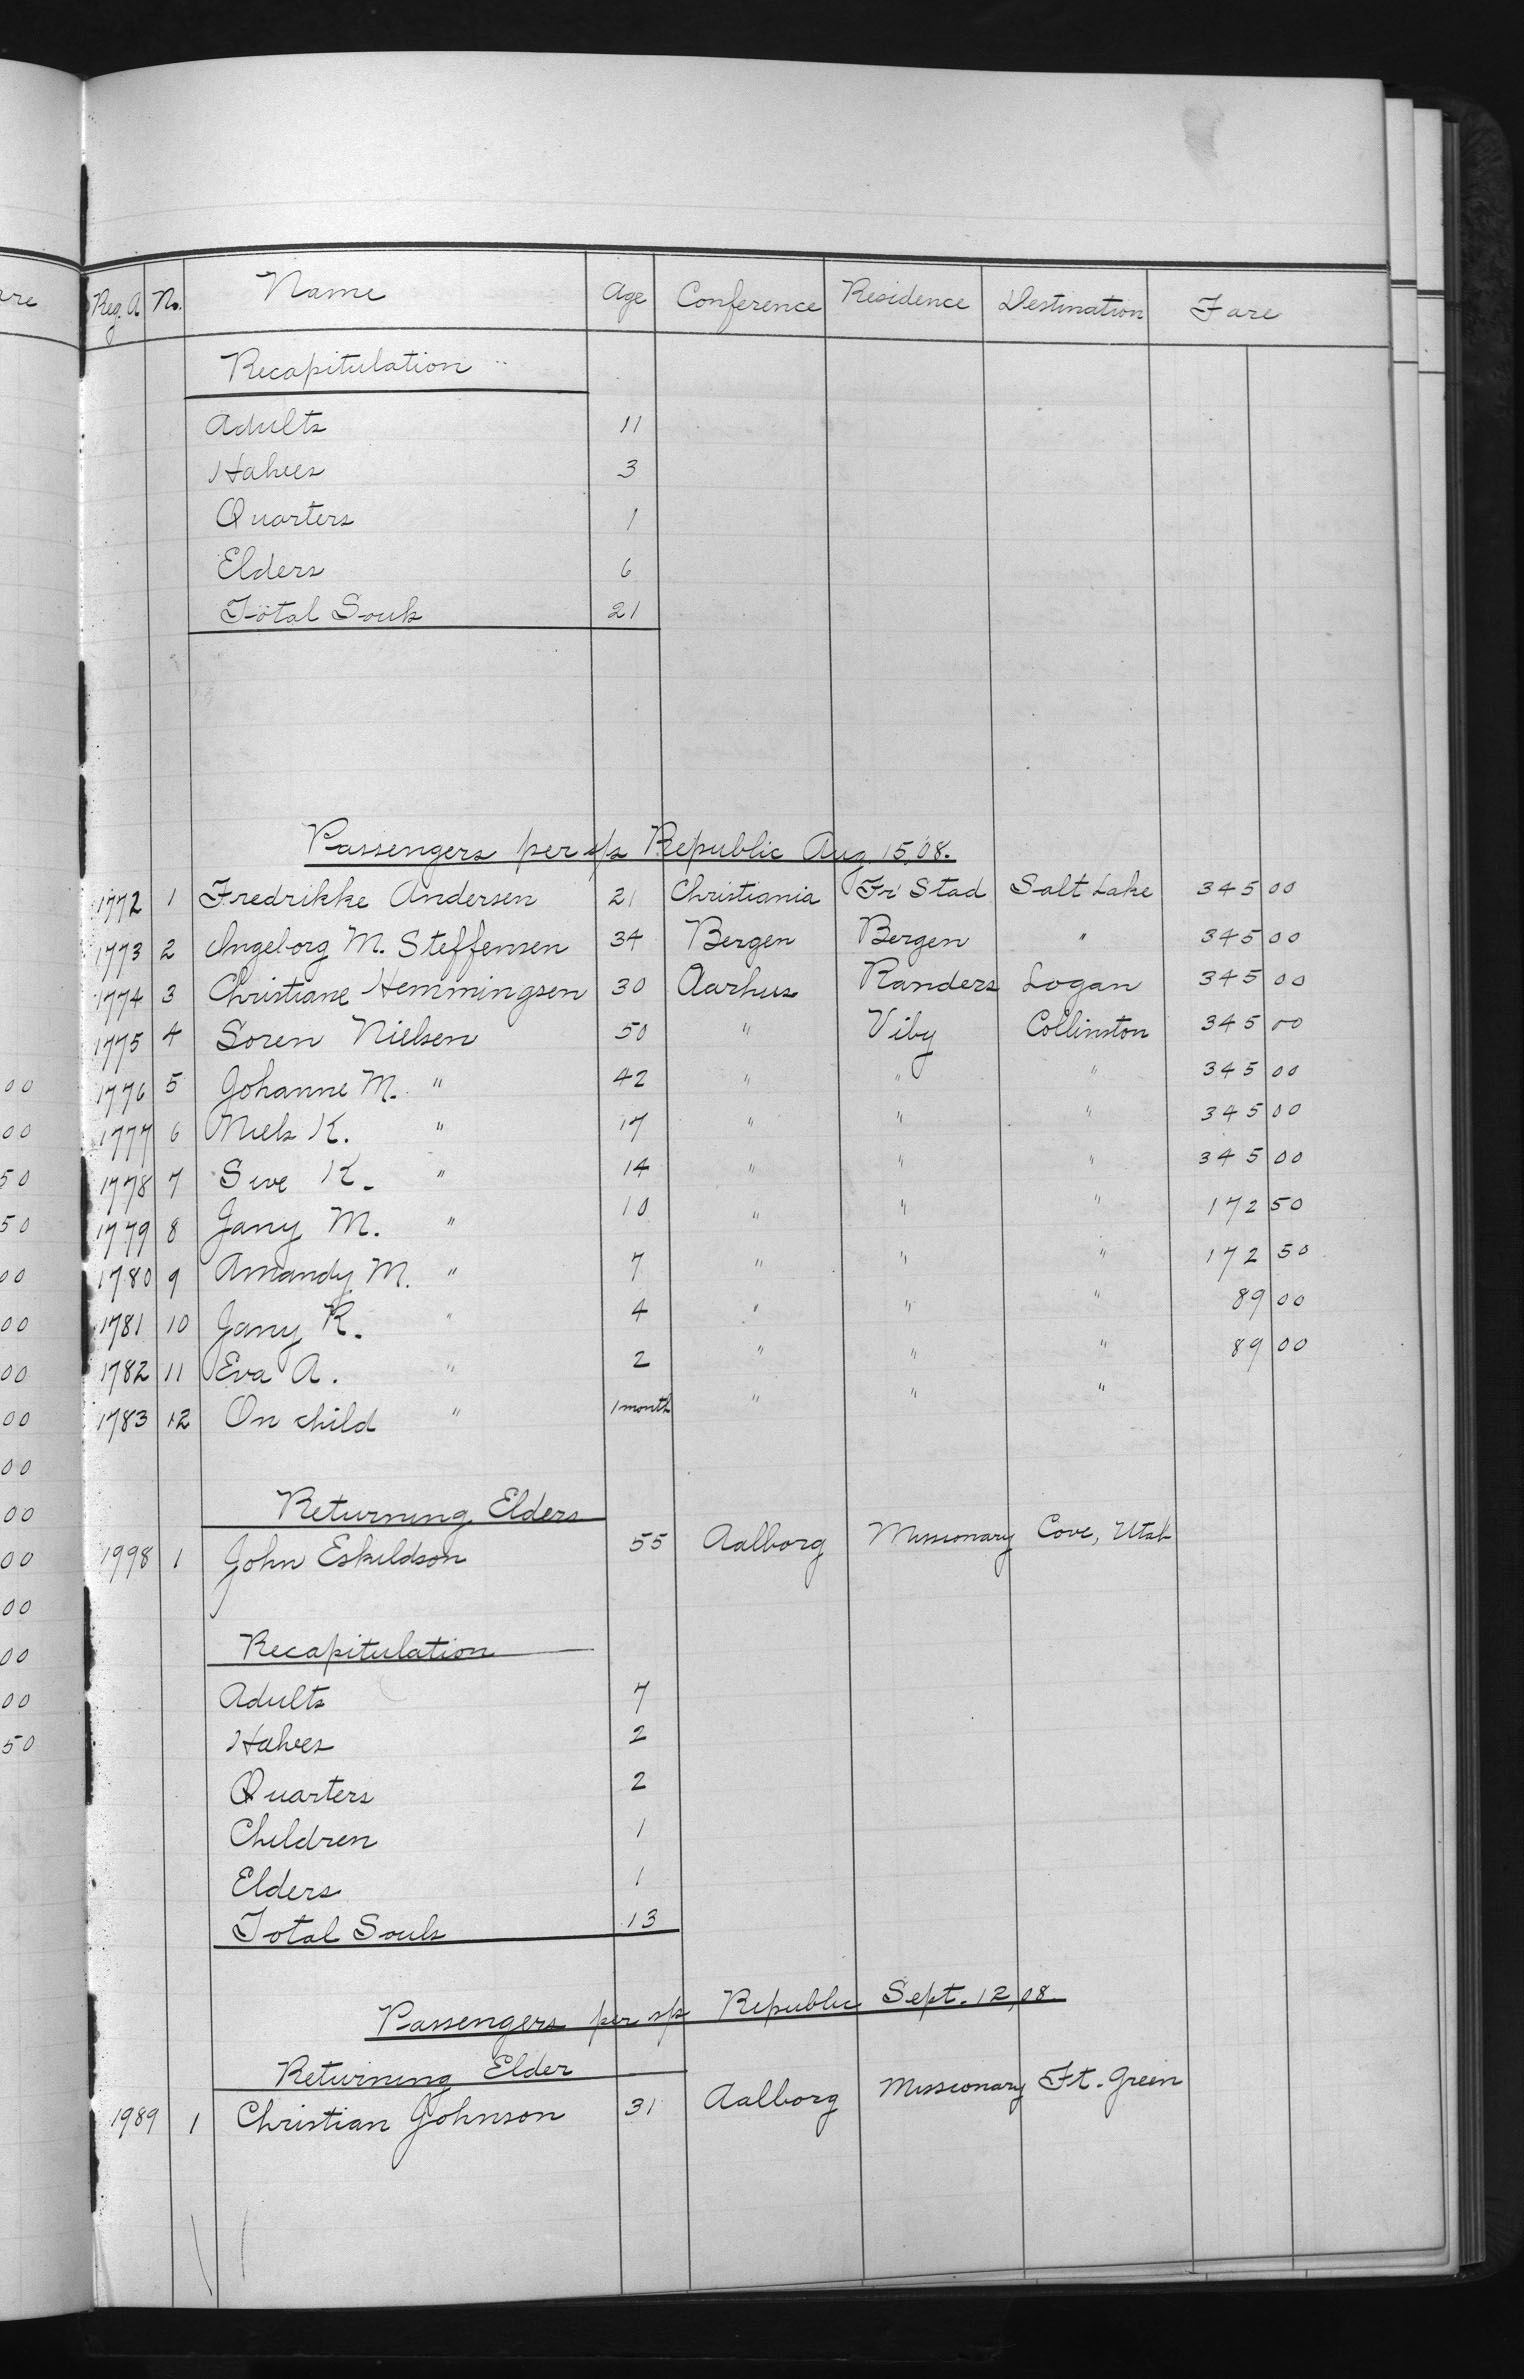 Reg. A. No. Name Age Conference Residence Destination Fare
Recapitulation
Adults 11
Halves 3
Quarters 1
Elders 6
Total Souls 21
Passengers per s/s Republic Aug. 15, 08.
1772 1 Fredrikke Andersen 21 Christiania Fr Stad Salt Lake 345 00
1773 2 Ingeborg M. Steffensen 34 Bergen Bergen " 345 00
1774 3 Christiane Hemmingsen 30 Aarhus Randers Logan 345 00
1775 4 Soren Nielsen 50 " Viby Collinston 345 00
1776 5 Johanne M. " 42 " " " 345 00
1777 6 Niels K. " 17 " " " 345 00
1778 7 Sive K. " 14 " " " 345 00
1779 8 Jany M. " 10 " " " 172 50
1780 9 Amandy M. " 7 " " " 172 50
1781 10 Jany R. " 4 " " " 89 00
1782 11 Eva A. " 2 " " " 89 00
1783 12 On child " 1 month " " "
Returning Elders
1998 1 John Eskildson 55 Aalborg Missionary Cove, Utah
Recapitulation
Adults 7
Halves 2
Quarters 2
Children 1
Elders 1
Total Souls 13
Passengers per s/s Republic Sept. 12, 08.
Returning Elder
1989 1 Christian Johnson 31 Aalborg Missionary Ft. Green